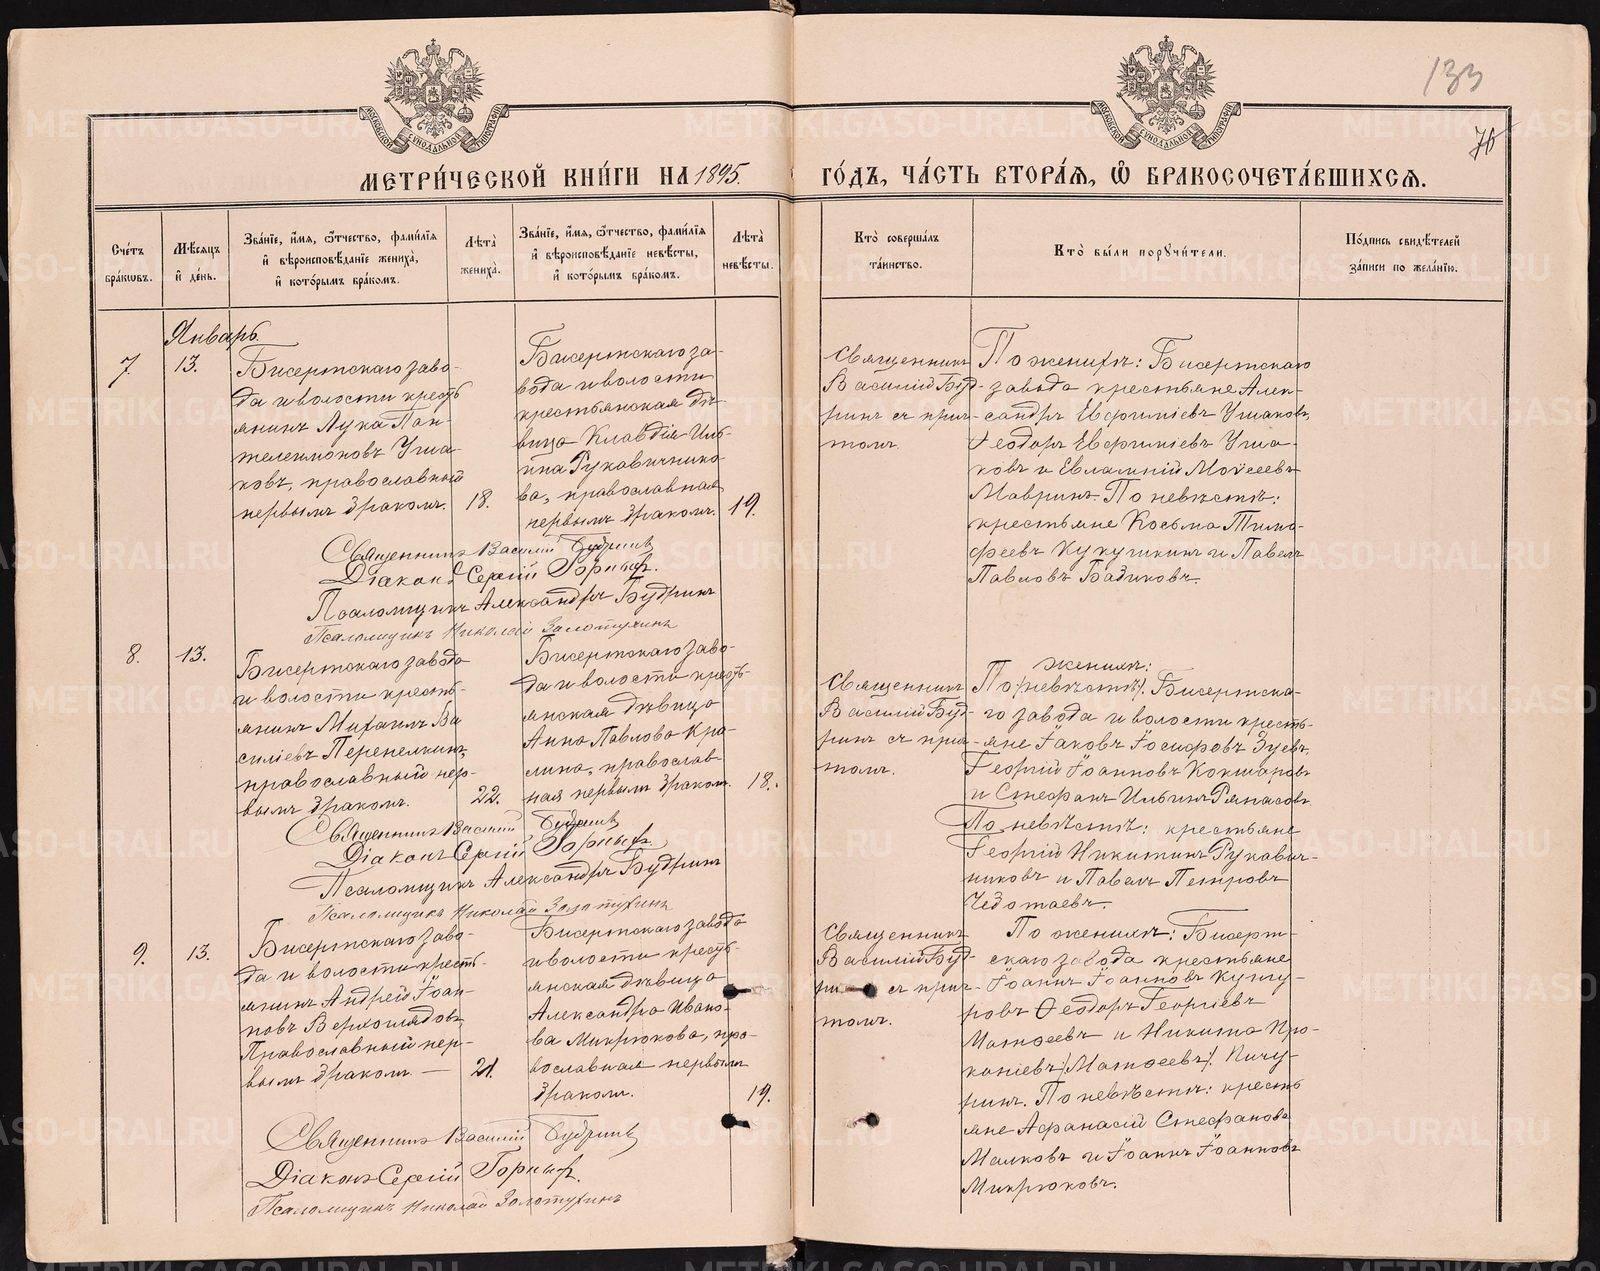 133
76
МЕТРИ́ЧЕСКОЙ КНИ́ГИ НА 1895. ГО́ДЪ, ЧА́СТЬ ВТОРА́Я, Ѽ БРАКОСОЧЕТА́ВШИХСЯ.
МОСКОВСКОЙ СѴНОДАЛЬНОЙ ТИПОГРАФІИ
МОСКОВСКОЙ СѴНОДАЛЬНОЙ ТИПОГРАФІИ
Сче́тъ
бра́ковъ.
Мѣ́сяцъ
и҆ де́нь.
Зва́нїе, и҆́мя, ѻ҆́тчество, фами́лїя
и҆ вѣроисповѣ́данїе жениха̀,
и҆ кото́рымъ бра́комъ.
Лѣ́та
жениха̀.
Зва́нїе, и҆́мя, ѻ҆́тчество, фами́лїя
и҆ вѣроисповѣ́данїе невѣ́сты,
и҆ кото́рымъ бра́комъ.
Лѣ́та
невѣ́сты.
Кто̀ соверша́лъ
та́инство.
Кто̀ бы́ли порꙋчи́тели.
По́дпись свидѣ́телей
за́писи по жела́нїю.
Январь.
7.
13.
Бисертскаго заво-
да и волости кресть
янинъ Лука Пан-
телеимоновъ Уша-
ковъ, православный
первымъ бракомъ.
18.
Бисертскаго за-
вода и волости
крестьянская дѣ-
вица Клавдія Иль-
ина Рукавичнико-
ва, православная
первымъ бракомъ.
19.
Священникъ
Василій Буд-
ринъ съ прич-
томъ.
По женихѣ: Бисертскаго
завода крестьяне Алек-
сандръ Евфиміевъ Ушаковъ,
Ѳеодоръ Евфиміевъ Уша-
ковъ и Евлампій Моисеевъ
Мавринъ. По невѣстѣ:
крестьяне Косьма Тимо-
феевъ Кукушкинъ и Павелъ
Павловъ Бадиковъ.
Священникъ Василій Будринъ
Діаконъ Сергій Горныхъ.
Псаломщикъ Александръ Будринъ
Псаломщикъ Николай Золотухинъ
8.
13.
Бисертскаго завода
и волости кресть-
янинъ Михаилъ Ва
силіевъ Перепелкинъ,
православный пер-
вымъ бракомъ.
22.
Бисертскаго заво-
да и волости кресть-
янская дѣвица
Анна Павлова Кра-
лина, православ-
ная первымъ бракомъ.
18.
Священникъ
Василій Буд-
ринъ съ прич-
томъ.
женихѣ:
По /невѣстѣ/. Бисертска-
го завода и волости кресть-
яне Іаковъ Іосифовъ Зуевъ,
Георгій Іоанновъ Кокшаровъ
и Стефанъ Ильинъ Рямасовъ
По невѣстѣ: крестьяне
Георгій Никитинъ Рукавич-
никовъ и Павелъ Петровъ
Чеботаевъ.
Священникъ Василій Будринъ
Діаконъ Сергій Горныхъ
Псаломщикъ Александръ Будринъ
Псаломщикъ Николай Золотухинъ
9.
13.
Бисертскаго заво-
да и волости кресть-
янинъ Андрей Іоан-
новъ Верхоглядовъ
Православный пер-
вымъ бракомъ. —
21.
Бисертскаго завода
и волости кресть-
янская дѣвица
Александра Ивано-
ва Микрюкова, пра-
вославная первымъ
бракомъ.
19.
Священникъ
Василій Буд-
ринъ съ прич-
томъ.
По женихѣ: Бисерт-
скаго завода крестьяне
Іоаннъ Іоанновъ Кунгу-
ровъ Ѳеодоръ Георгіевъ
Матѳеевъ и Никита Про-
копіевъ /Матѳеевъ/. Пичу-
ринъ. По невѣстѣ: кресть
яне Афанасій Стефановъ
Малковъ и Іоаннъ Іоанновъ
Микрюковъ.
Священникъ Василій Будринъ
Діаконъ Сергій Горныхъ.
Псаломщикъ Николай Золотухинъ
METRIKI.GASO-URAL.RU